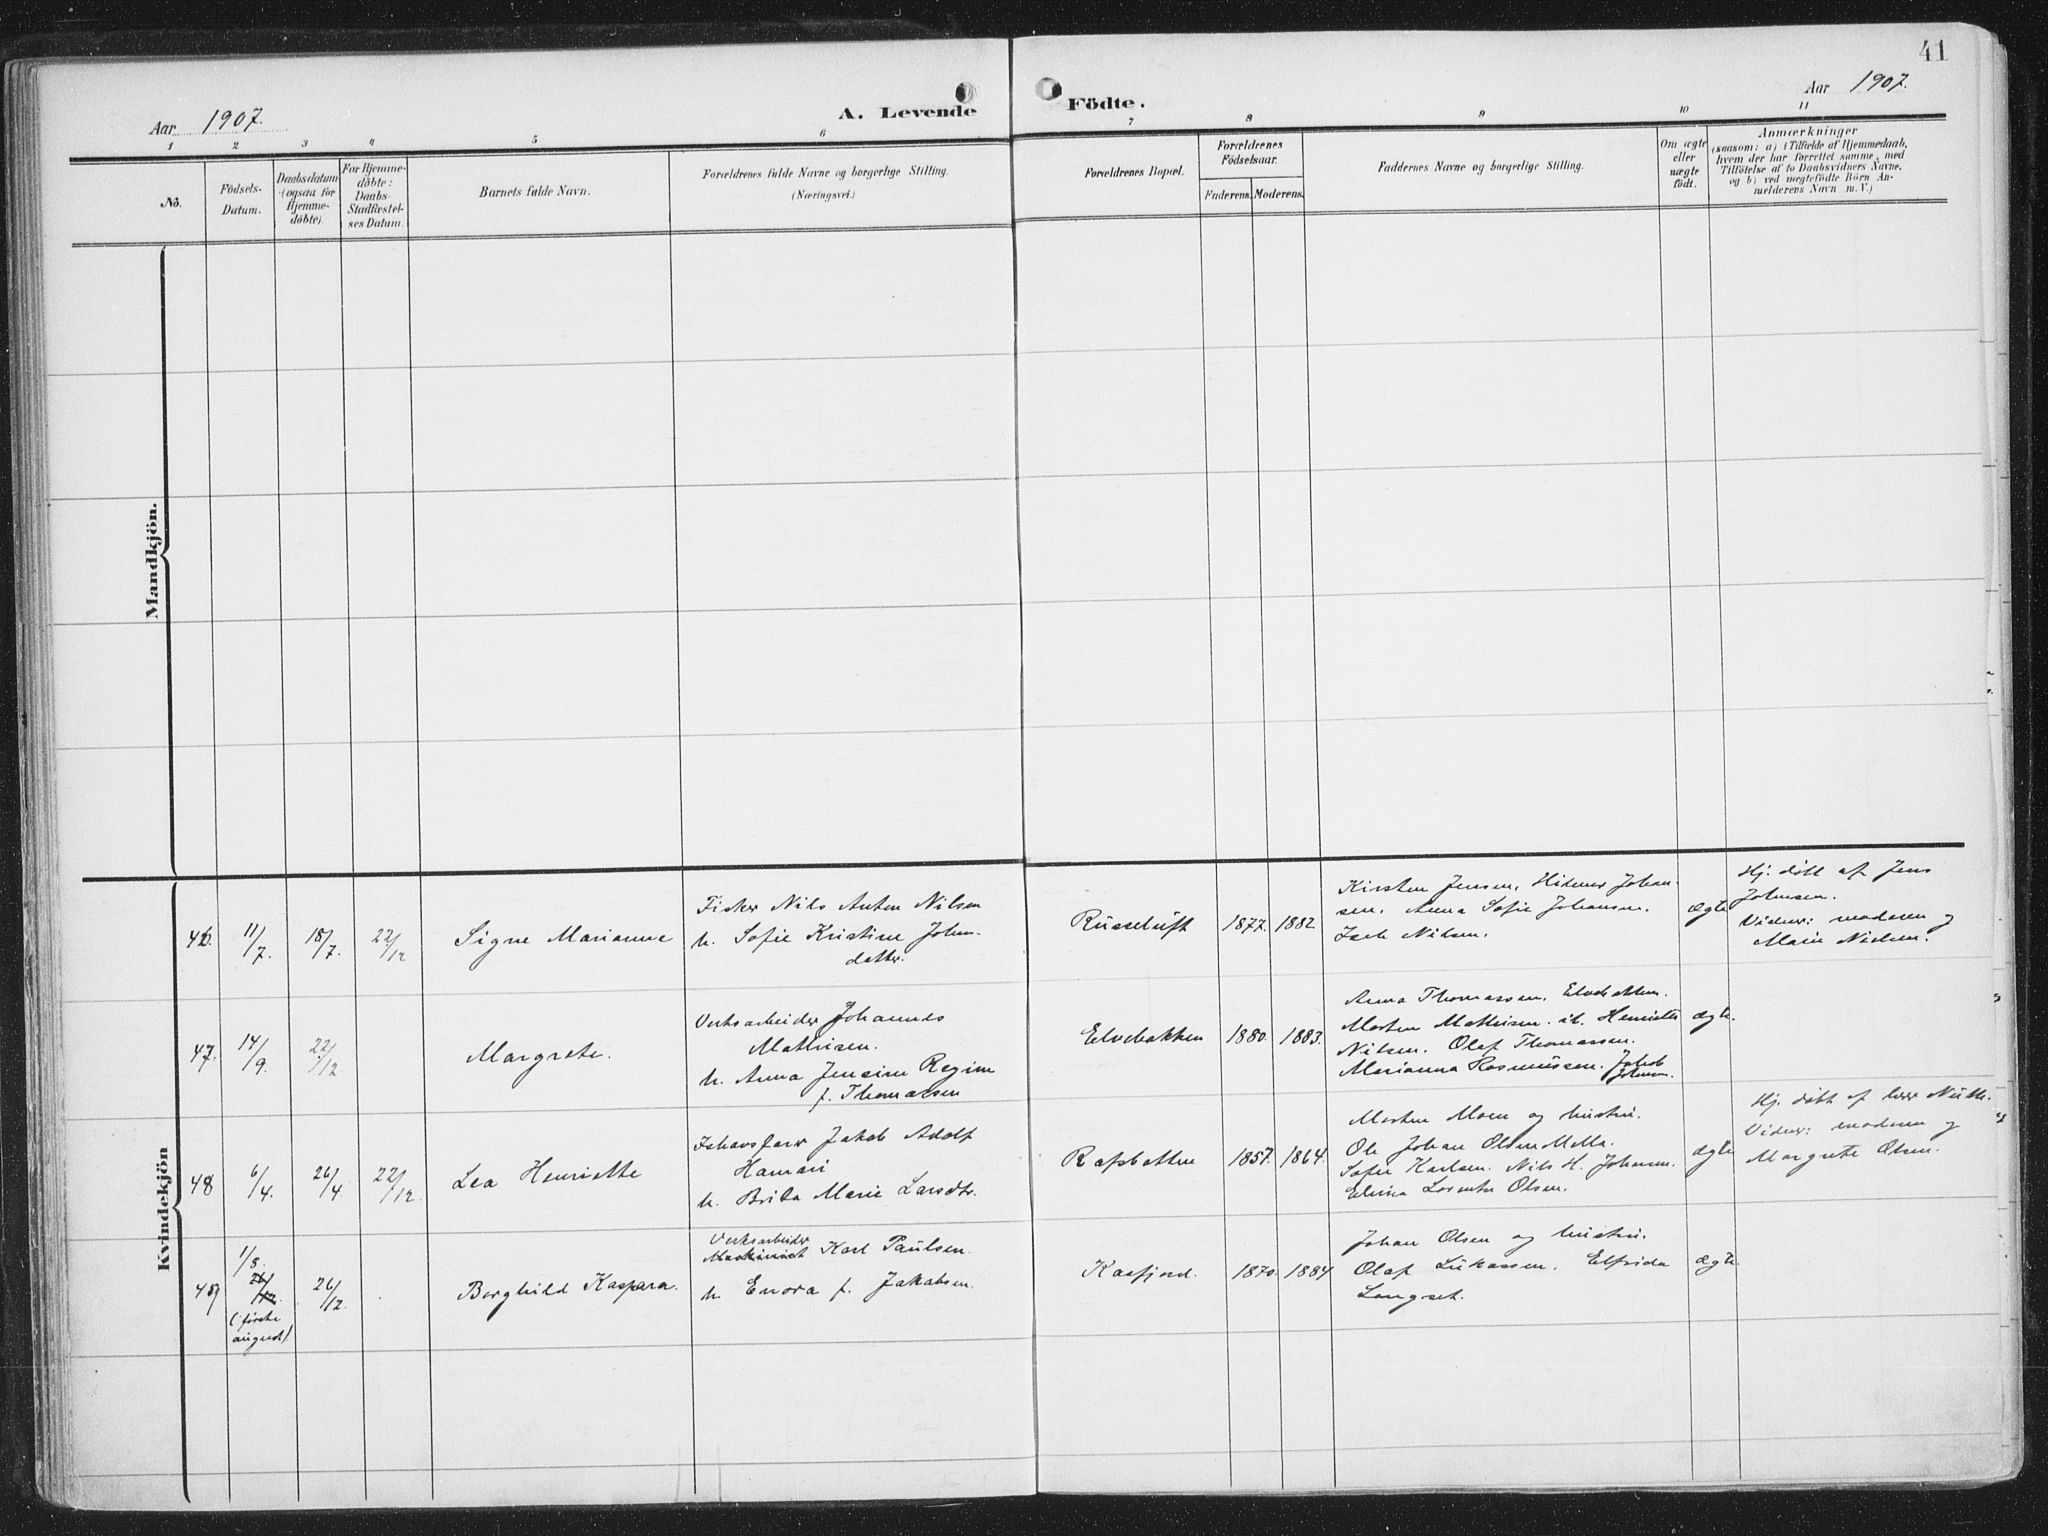 41
Aar 1907.
A. Levende
Födte.
Aar 1907.
1 2 3 4 5 6 7 8 9 10 11
No.
Födsels-
Datum.
Daabsdatum
(ogsaa for
Hjemme-
döbte).
For Hjemme-
döbte:
Daabs-
Stadfæstel-
ses Datum.
Barnets fulde Navn.
Forældrenes fulde Navne og borgerlige Stilling.
(Næringsvei.)
Forældrenes Bopæl.
Forældrenes
Födselsaar.
Faderens. Moderens.
Faddernes Navne og borgerlige Stilling.
Om ægte
eller
uægte
födt.
Anmærkninger
(saasom: a) i Tilfælde af Hjemmedaab,
hvem der har forrettet samme, med
Tilföielse af to Daabsvidners Navne.
og b) ved uægtefödte Börn An-
melderens Navn m. V.)
Mandkjön.
Kvindekjön
46. 11/7. 18/7. 22/12 Signe Marianne
Fisker Nils Anton Nilsen
h. Sofie Kristine Johns-
datter.
Russeluft 1877. 1882
Kirsten Jensen. Johan-
sen. Anna Sofie Johansen.
Nilsen.
ægte
Hj. döbt af Jens
Johnsen.
Vidner: moderen og
Marie Nielsen.
47. 14/9. 22/12 Margrete.
Verksarbeider Johannes
Mathisen.
h. Anna Jensine Regine
f. Thomassen
Elvebakken 1880. 1883.
Anna Thomassen. Elvebakken.
Morten Mathisen. ib. Henriette
Nilsen. Olaf Thomassen.
Marianna Rasmussen. Jakob
Johnsen.
ægte.
48 6/4. 26/4 22/12. Lea Henriette
Ishavsfarer Jakob Adolf
Hamari
h. Brita Marie Larsdtr.
Rafsbotten 1857. 1864.
Morten Moen og hustru.
Ole Johan Olsen Mella.
Sofie Karlsen. Nils H. Johnsen.
Elvina Lorentse Olsen.
ægte
Hj. döbt af lærer
Vidner: moderen og
Margrete Olsen.
49 1/8. 26/12. (første
august) 26/12. Borghild Kaspara.
Verksarbeider
Maskinist Karl Paulsen.
h. Enora f. Jakobsen.
Kaafjord. 1870. 1884
Johan Olsen og hustru.
Olaf Lukassen. Elfrida
Langset.
ægte.